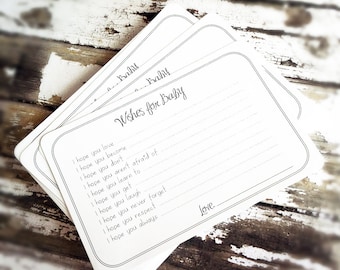 Wishes for Baby
I hope you love
I hope you become
I hope you don't
I hope you aren't afraid of
I hope you learn to
I hope you get
I hope you laugh
I hope you never forget
I hope you respect
I hope you always
Love